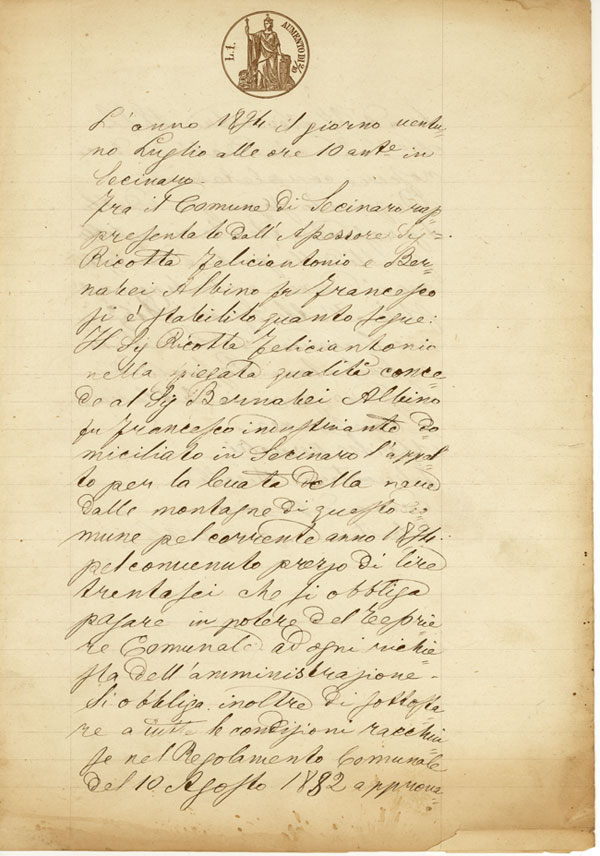 L. 1. AUMENTO DI 2/10
L'anno 1894 il giorno ventu=
no Luglio alle ore 10 ant.e in
Secinaro.
Fra il Comune di Secinaro rap
presentato dall'Assessore Sig.r
Ricotta Feliciantonio e Ber=
narei Albino fu Francesco
si è stabilito quanto segue:
Il Sig Ricotta Feliciantonio
nella spiegata qualità conce=
de al Sig Bernarei Albino
fu Francesco industriante do=
miciliato in Secinaro l'appal=
to per la levata della neve
dalle montagne di questo Co=
mune pel corrente anno 1894.
pel convenuto prezzo di lire
trentasei che si obbliga
pagare in potere del Tesorie
re Comunale ad ogni richie
sta dell'amministrazione.
Si obbliga inoltre di sottosta
re a tutte le condizioni racchiu=
se nel Regolamento Comunale
del 10 Agosto 1882 approva=